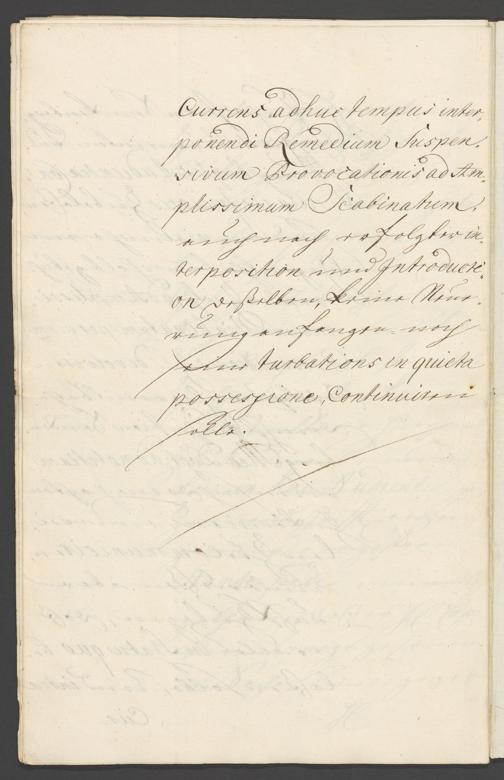 Currens adhuc tempus inter,
ponendi Remedium Suspen,
sivum Provocationis ad Am,
plissimum Scabinatum,
auch nach erfolgter in,
terposition und Introducti,
on deßelben, keine Neue,
rung anfangen noch
seine turbations in quieta
possessione, continuiren
solle.